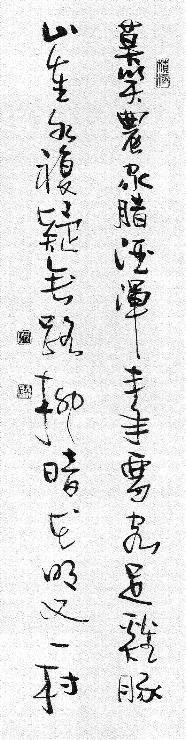 莫笑農家腊酒渾丰年留客足雞豚
山重水複疑無路柳暗花明又一村